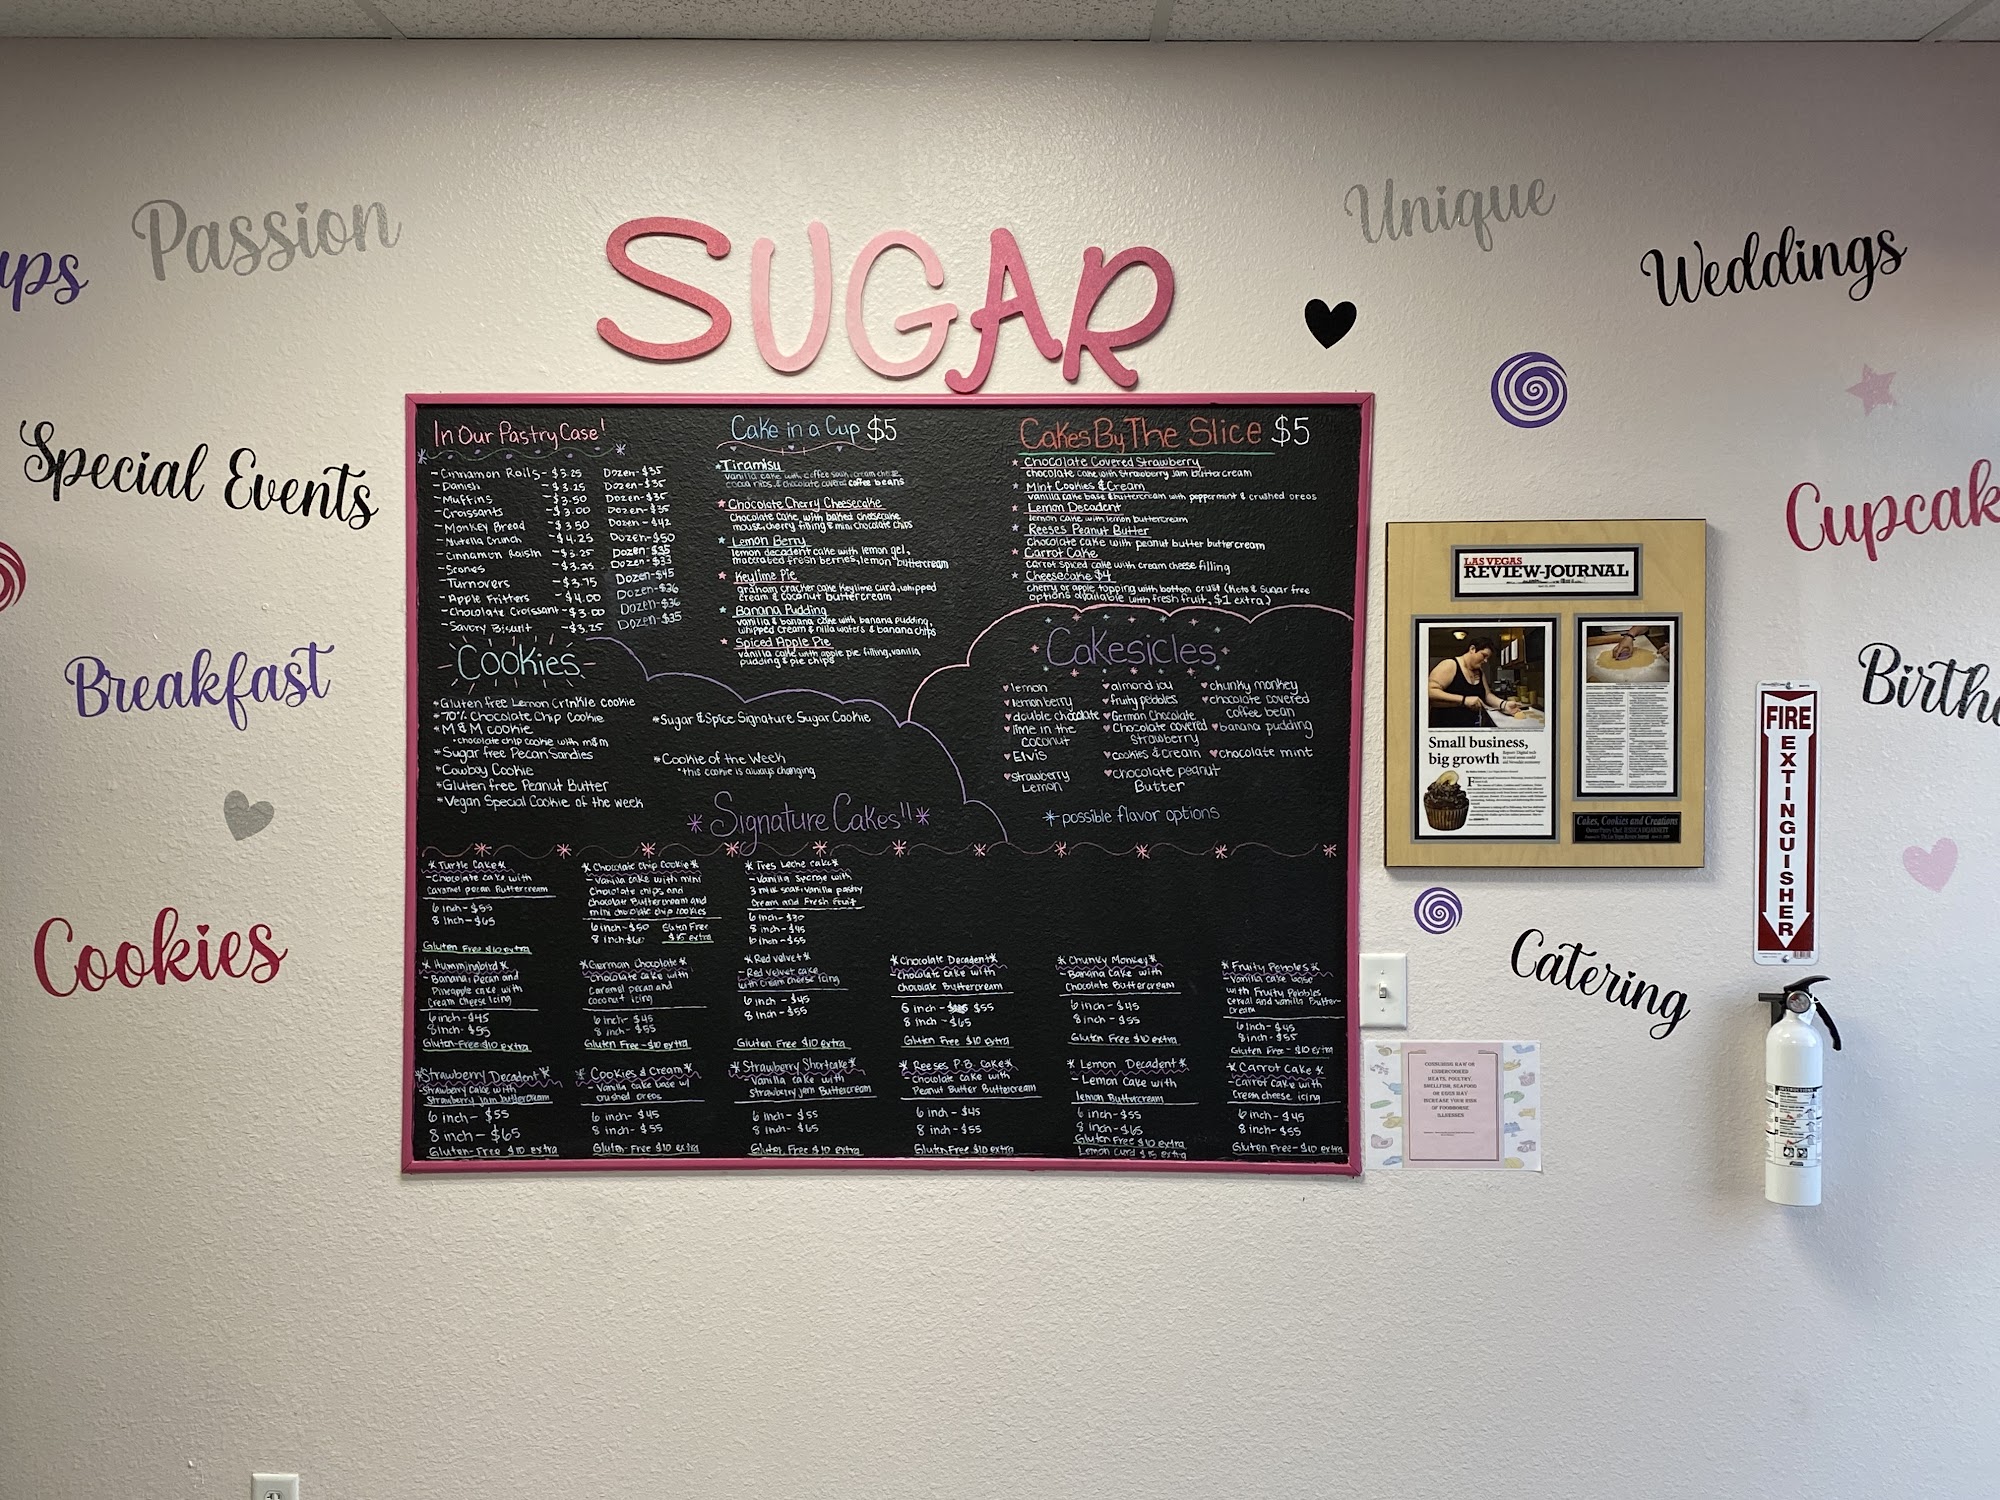 ups
Passion
Unique
Weddings
SUGAR
Special Events
Cupcak
Breakfast
Birth
Cookies
Catering
In Our Pastry Case!
-Cinnamon Rolls-$3.25 Dozen-$35
-Danish -$3.25 Dozen-$35
-Muffins -$3.50 Dozen-$35
-Croissants -$3.00 Dozen-$35
-Monkey Bread -$3.50 Dozen-$42
-Nutella Crunch -$4.25 Dozen-$50
-Cinnamon Raisin -$3.25 Dozen-$35
-Scones -$3.25 Dozen-$33
-Turnovers -$3.75 Dozen-$45
-Apple Fritters -$4.00 Dozen-$36
-Chocolate Croissant-$3.00 Dozen-$36
-Savory Biscuit -$3.25 Dozen-$35
Cake in a Cup $5
*Tiramisu
vanilla cake with coffee soak, cream cheese,
cocoa nibs & chocolate covered coffee beans
*Chocolate Cherry Cheesecake
Chocolate Cake with baked cheesecake
mouse, cherry filling & mini chocolate chips
*Lemon Berry
lemon decadent cake with lemon gel,
macerated fresh berries, lemon buttercream
*Keylime Pie
graham cracker cake keylime curd, whipped
cream & coconut buttercream
*Banana Pudding
vanilla & banana cake with banana pudding,
whipped cream & nilla wafers & banana chips
*Spiced Apple Pie
vanilla cake with apple pie filling, vanilla
pudding & pie chips
Cakes By The Slice $5
*Chocolate Covered Strawberry
chocolate cake with strawberry jam buttercream
*Mint Cookies & Cream
vanilla cake base & buttercream with peppermint & crushed oreos
*Lemon Decadent
lemon cake with lemon buttercream
*Reeses Peanut Butter
Chocolate cake with peanut butter buttercream
*Carrot Cake
carrot spiced cake with cream cheese filling
*Cheesecake $4
cherry or apple topping with bottom crust (Keto & Sugar free
options available with fresh fruit, $1 extra)
Cookies
*Gluten free Lemon Crinkle Cookie
*70% Chocolate Chip Cookie
*M & M cookie
•chocolate chip cookie with m&m
*Sugar free Pecan Sandies
*Cowboy Cookie
*Gluten free Peanut Butter
*Vegan Special Cookie of the week
*Sugar & Spice Signature Sugar Cookie
*Cookie of the Week
*this cookie is always changing
Cakesicles
lemon
lemon berry
double chocolate
lime in the
coconut
Elvis
strawberry
Lemon
almond joy
fruity pebbles
German Chocolate
Chocolate covered
strawberry
cookies & cream
chocolate peanut
Butter
chunky monkey
chocolate covered
coffee bean
banana pudding
chocolate mint
*possible flavor options
*Signature Cakes!!*
*Turtle Cake*
-Chocolate cake with
caramel pecan Buttercream
6 inch-$55
8 inch-$65
Gluten Free $10 extra
*Chocolate Chip Cookie*
-Vanilla cake with mini
Chocolate chips and
chocolate Buttercream and
mini chocolate chip cookies
6inch-$50
8 inch-$60
Gluten Free
$15 extra
*Tres Leche Cake*
-Vanilla Sponge with
3 milk soak, vanilla pastry
Cream and Fresh Fruit
6 inch-$30
8 inch-$45
10 inch-$55
*Hummingbird*
-Banana, Pecan and
Pineapple cake with
Cream Cheese Icing
6 inch-$45
8 inch-$55
Gluten-Free $10 extra
*German Chocolate*
-Chocolate cake with
Caramel pecan and
coconut icing
6 inch- $45
8 inch- $55
Gluten Free-$10 extra
*Red velvet*
-Red velvet cake
with Cream cheese Icing
6 inch -$45
8 inch -$55
Gluten Free $10 extra
*Chocolate Decadent*
-Chocolate Cake with
chocolate Buttercream
6 inch- $55
8 inch -$65
Gluten Free $10 extra
*Chunky Monkey*
-Banana Cake with
Chocolate Buttercream
6 inch -$45
8 inch -$55
Gluten Free $10 extra
*Fruity Pebbles*
-Vanilla cake base
with Fruity Pebbles
cereal and vanilla Butter-
cream
6 inch-$45
8 inch-$55
Gluten Free - $10 extra
*Strawberry Decadent*
Strawberry Cake with
Strawberry jam buttercream
6 inch- $55
8 inch- $65
Gluten-Free $10 extra
*Cookies & Cream*
-Vanilla cake base w/
crushed oreos
6 inch- $45
8 inch- $55
Gluten-Free $10 extra
*Strawberry Shortcake*
-Vanilla cake with
Strawberry jam Buttercream
6 inch- $55
8 inch- $65
Gluten Free $10 extra
*Reeses P.B. Cake*
-Chocolate cake with
Peanut Butter Buttercream
6 inch- $45
8 inch- $55
Gluten Free $10 extra
*Lemon Decadent*
-Lemon Cake with
lemon Buttercream
6 inch-$55
8 inch-$65
Gluten Free $10 extra
Lemon Curd $15 extra
*Carrot Cake*
-Carrot cake with
Cream cheese icing
6 inch -$45
8 inch- $55
Gluten Free-$10 extra
LAS VEGAS
REVIEW-JOURNAL
Small business,
big growth
Cakes, Cookies and Creations
FIRE
EXTINGUISHER
CONSUMING RAW OR
UNDERCOOKED
MEATS, POULTRY,
SHELLFISH, SEAFOOD
OR EGGS MAY
INCREASE YOUR RISK
OF FOODBORNE
ILLNESSES
INSTRUCTIONS